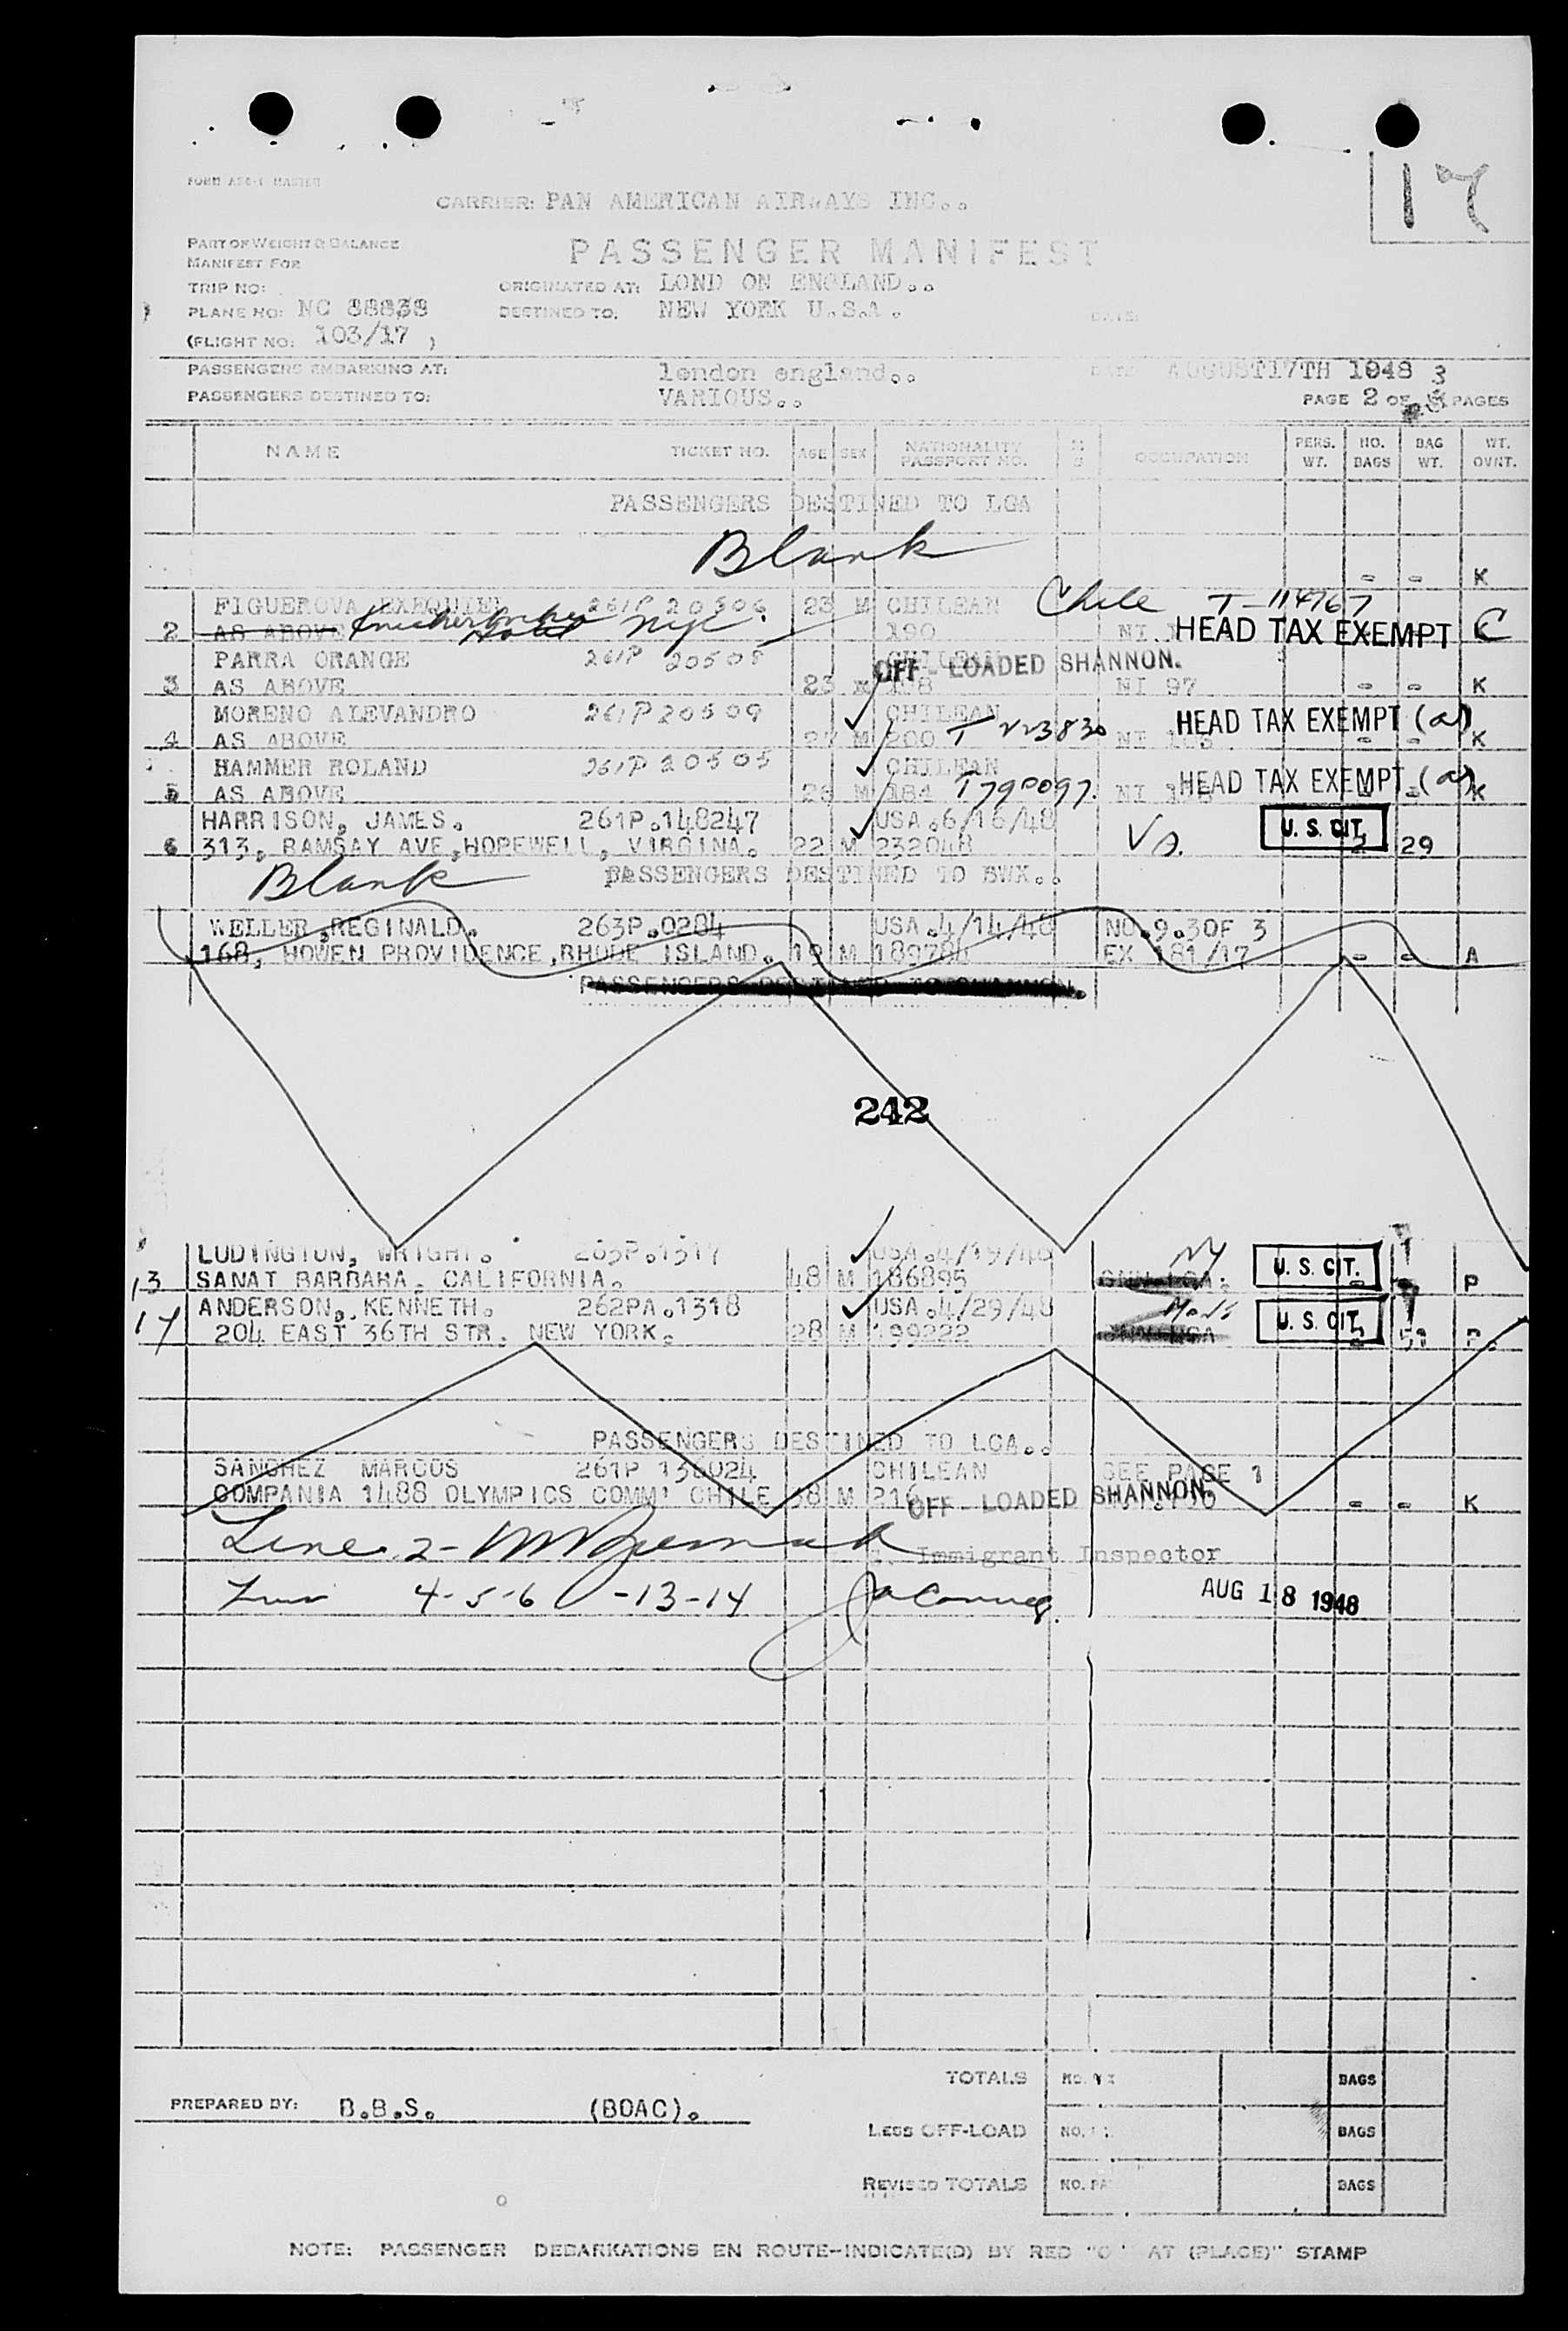 17
CARRIER: PAN AMERICAN AIRWAYS INC..
PART OF WEIGHT & BALANCE
MANIFEST FOR
PASSENGER MANIFEST
TRIP NO: ORIGINATED AT: LOND ON ENGLAND..
PLANE NO: NC 88838 DESTINED TO: NEW YORK U.S.A. DATE:
(FLIGHT NO: 103/17 )
PASSENGERS EMBARKING AT: london england.. DATE AUGUST17TH 1948 3
PASSENGERS DESTINED TO: VARIOUS.. PAGE 2 OF PAGES
NAME TICKET NO. AGE SEX NATIONALITY PASSPORT NO. OCCUPATION PERS. WT. NO. BAGS BAG WT. WT. OVNT.
PASSENGERS DESTINED TO LGA
Blank
- - K
FIGUEROVA EXEQUIEL 261P 20506 23 M CHILEAN Chile T-114767
2 AS ABOVE Knickerbocker Hotel NYC. 190 NI HEAD TAX EXEMPT C
PARRA ORANGE 261P 20508 CHILEAN OFF - LOADED SHANNON.
3 AS ABOVE 23 M 198 NI 97 - - K
MORENO ALEVANDRO 261P20509 CHILEAN HEAD TAX EXEMPT (a)
4 AS ABOVE 27 M 200 T 223830 NI 103 - - K
HAMMER ROLAND 261P20505 CHILEAN
5 AS ABOVE 26 M 184 T790097 NI HEAD TAX EXEMPT (a) - K
HARRISON, JAMES. 261P.148247 USA.6/16/48
6 313, RAMSAY AVE,HOPEWELL, VIRGINA. 22 M 232048 Va. U. S. CIT. 2 29
Blank PASSENGERS DESTINED TO BWK..
WELLER,REGINALD. 263P.0284 USA.4/14/48 NO.9.30F 3
168, HOWEN PROVIDENCE,RHODE ISLAND. 19 M 189788 EX 181/17 - - A
PASSENGERS DESTINED TO SHANNON.
242
LUDINGTON, WRIGHT. 263P.1317 USA.4/19/48 NY 1
13 SANAT BARBARA. CALIFORNIA. 48 M 186895 SNN LGA. U. S. CIT. P
ANDERSON, KENNETH. 262PA.1318 USA.4/29/48
14 204 EAST 36TH STR. NEW YORK. 28 M 199222 SNN LGA U. S. CIT. P.
PASSENGERS DESTINED TO LGA..
SANCHEZ MARCOS 261P 138024 CHILEAN SEE PAGE 1
COMPANIA 1488 OLYMPICS COMM' CHILE 38 M 216 OFF - LOADED SHANNON. - - K
Line 2- Immigrant Inspector
4-5-6 -13-14 AUG 18 1948
TOTALS BAGS
PREPARED BY: B.B.S. (BOAC).
LESS OFF-LOAD NO. BAGS
REVISED TOTALS NO. PA BAGS
NOTE: PASSENGER DEBARKATIONS EN ROUTE-INDICATE(D) BY RED "O " AT (PLACE)" STAMP